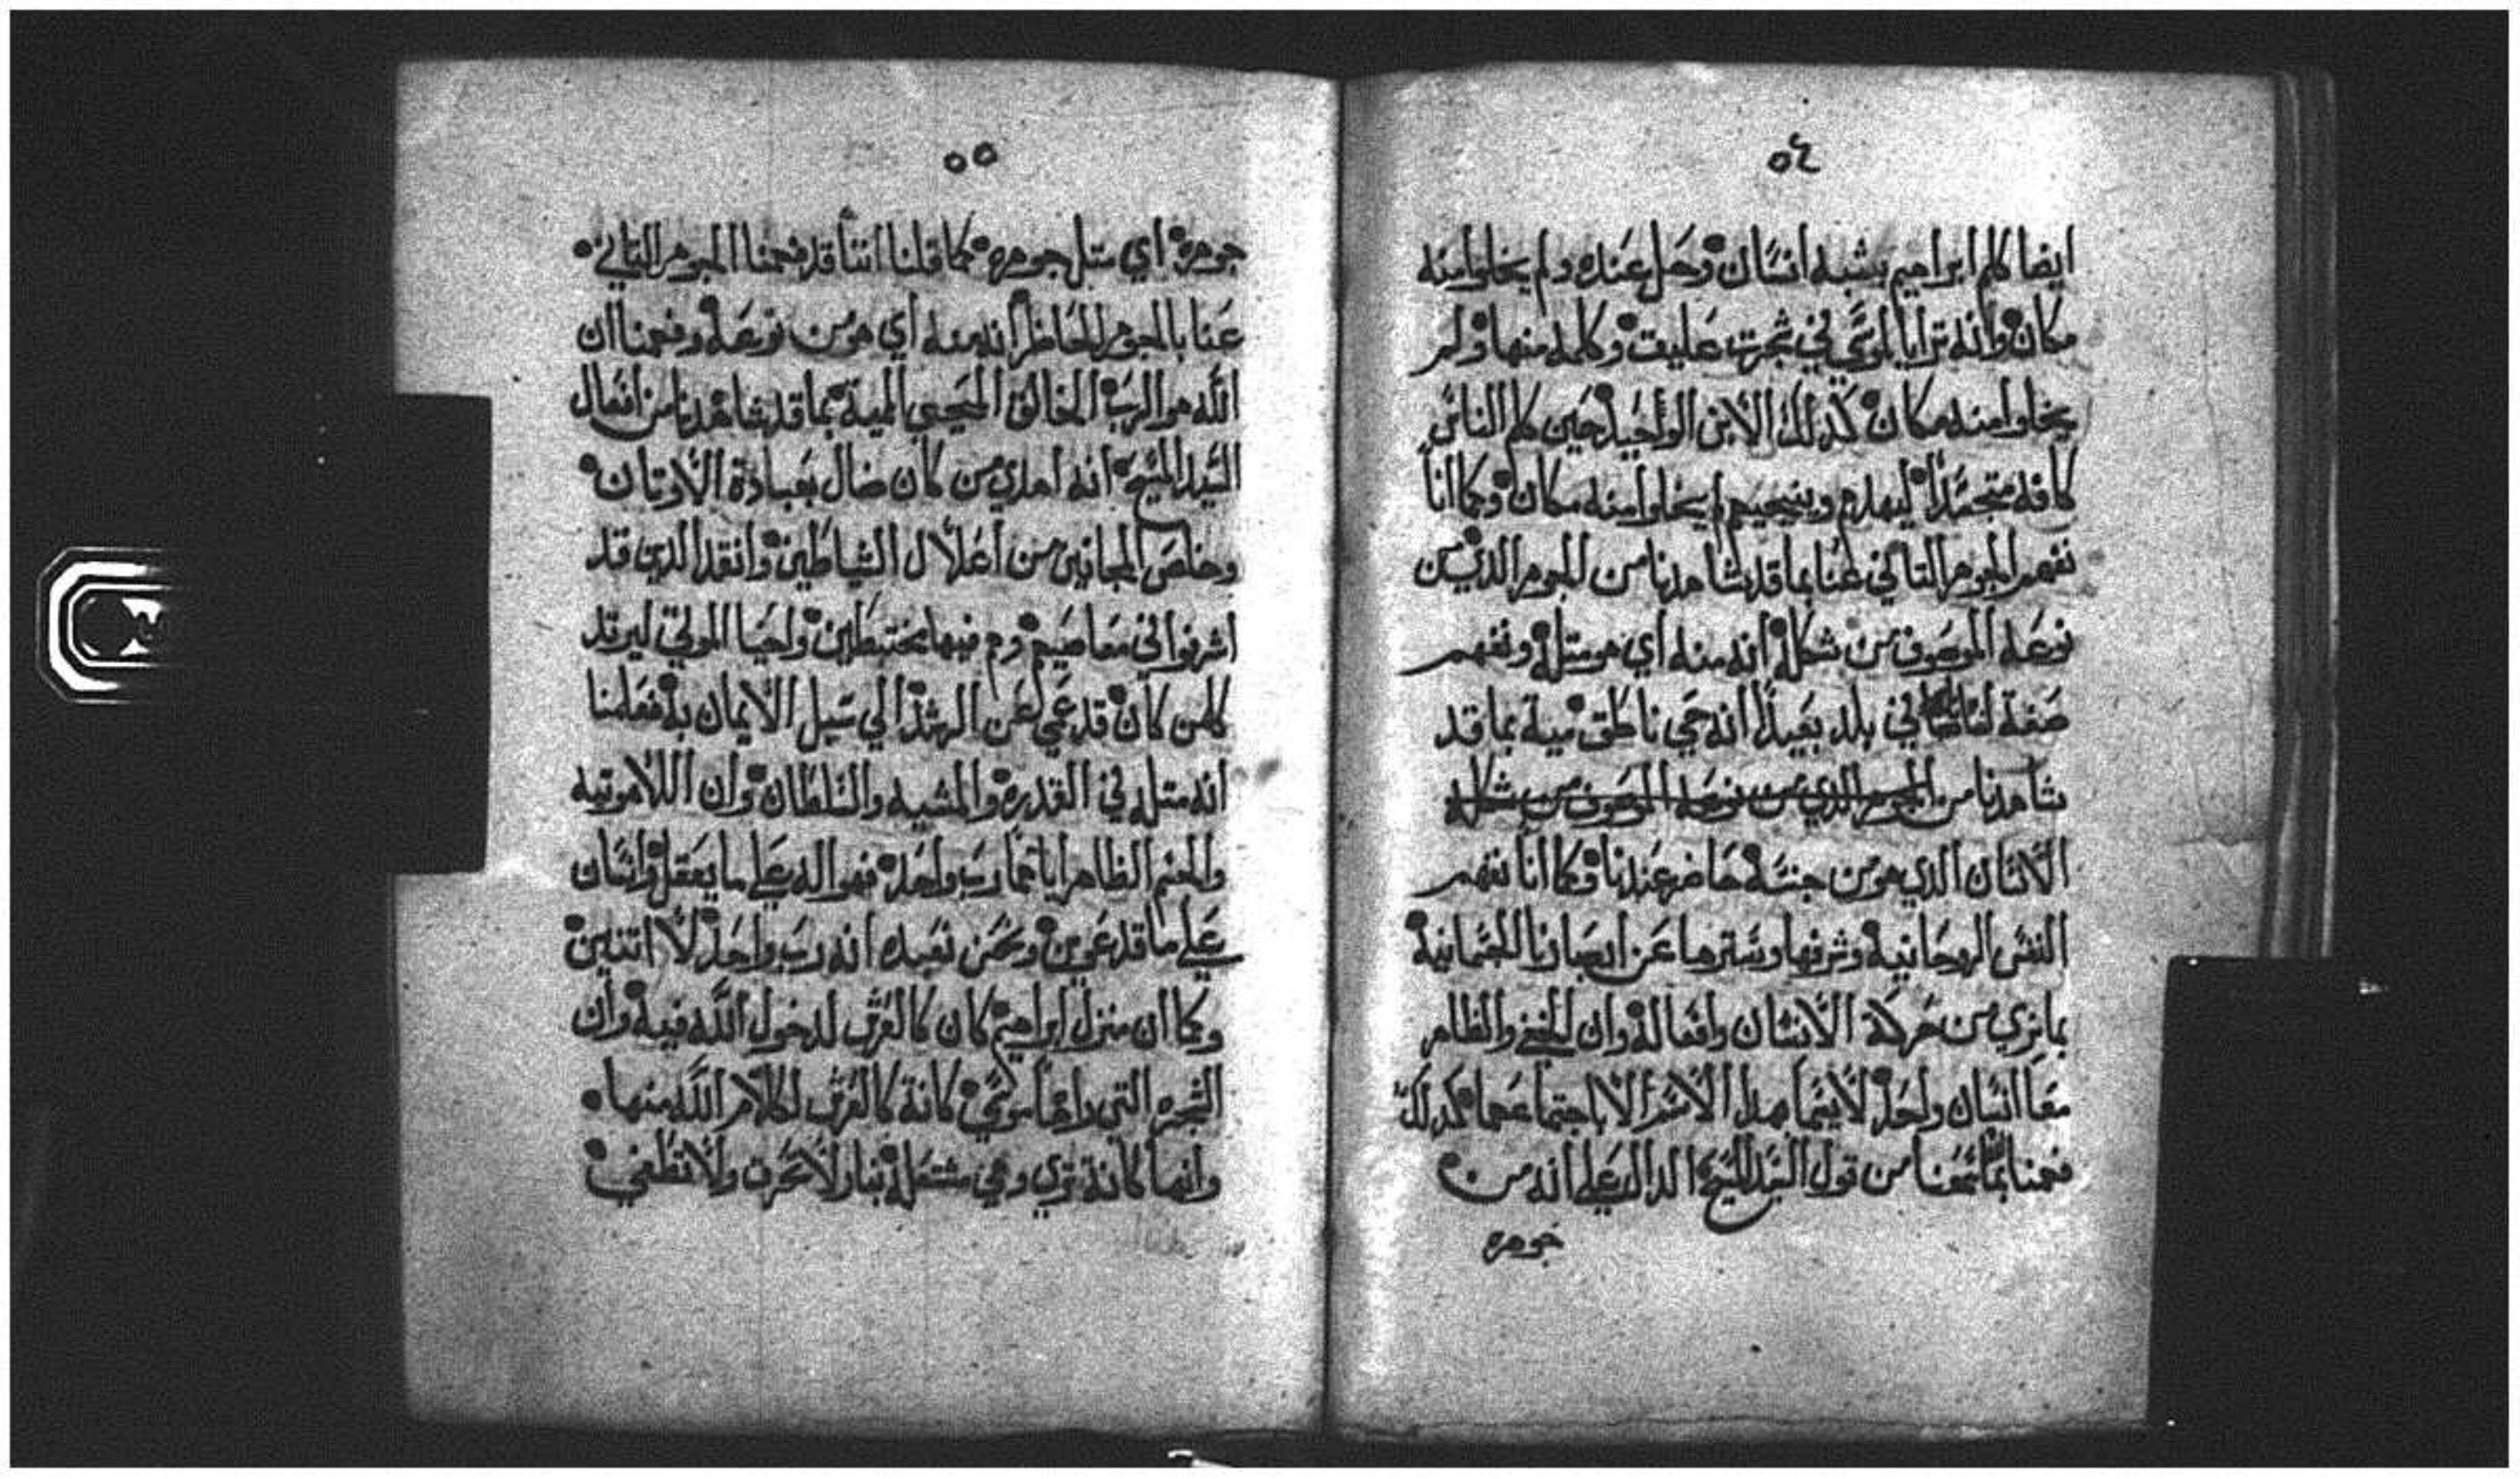 ٥٤
ايضا كلم ابراهيم بشبه انسان وحل عنده ولم يخلوا منه
مكان وانه ترايا لموسي في شجرت عليت وكلمه منها ولم
يخلوا منه مكان كذلك الابن الواحيد حين كلم الناس
كافه متجسدًا ليهدم وينجيهم لم يخلوا منه مكان وكما انا
نفهم الجوهر التاني عنا بما قد شاهدنا من الجوهر الذي من
نوعه الموصوف من شكله انه منه اي هو متله ونفهم
صفة انسان في بلد بعيد انه حي ناطق ميت بما قد
شاهدنا من الجوهر الذي من نوعه الموصوف من شكله
الانسان الذي هو من جنسه حاضر عندنا وكما انا نفهم
النفس الروحانيه وشرفها وسترها عن ابصارنا الجسمانية
بما نري من حركة الانسان وافعاله وان الخفي والظاهر
معا انسان واحد لا يتما بهدا الاسم الا باجتماعهما كدلك
فهمنا بما سمعنا من قول السيد المسيح الدال علي انه من
جوهره
٥٥
جوهره اي متل جوهره كما قلنا اننا قد فهمنا الجوهر التاني
عنا بالجوهر الحاظر انه منه اي هو من نوعه وفهمنا ان
الله هو الرب الخالق المحيي المميت بما قد شاهدنا من افعال
السيد المسيح انه اهدي من كان ضال بعبادة الاوتان
وخلص المجانين من اغلال الشياطين وانقد الدين قد
اشرفوا في معاصيهم وهم فيها مختبطين واحيا الموتي ليرتد
كلمن كان قد عمي عن الرشد الي سبل الايمان به فعلمنا
انه متله في القدره والمشيه والسلطان وان اللاهوتيه
والجسم الظاهر ايا هما رب واحد فهو اله علي ما يعقل وانسان
علي ما قد عوين ونحن نعبده انه رب واحد لا اتنين
وكما ان منزل ابراهيم كان كالعرش لدخول الله فيه وان
الشجره التي راها موسي كانة كالعرش لكلام الله منها
وانها كانة تري وهي مشتعله بنار ولا تحرق ولا تطفي